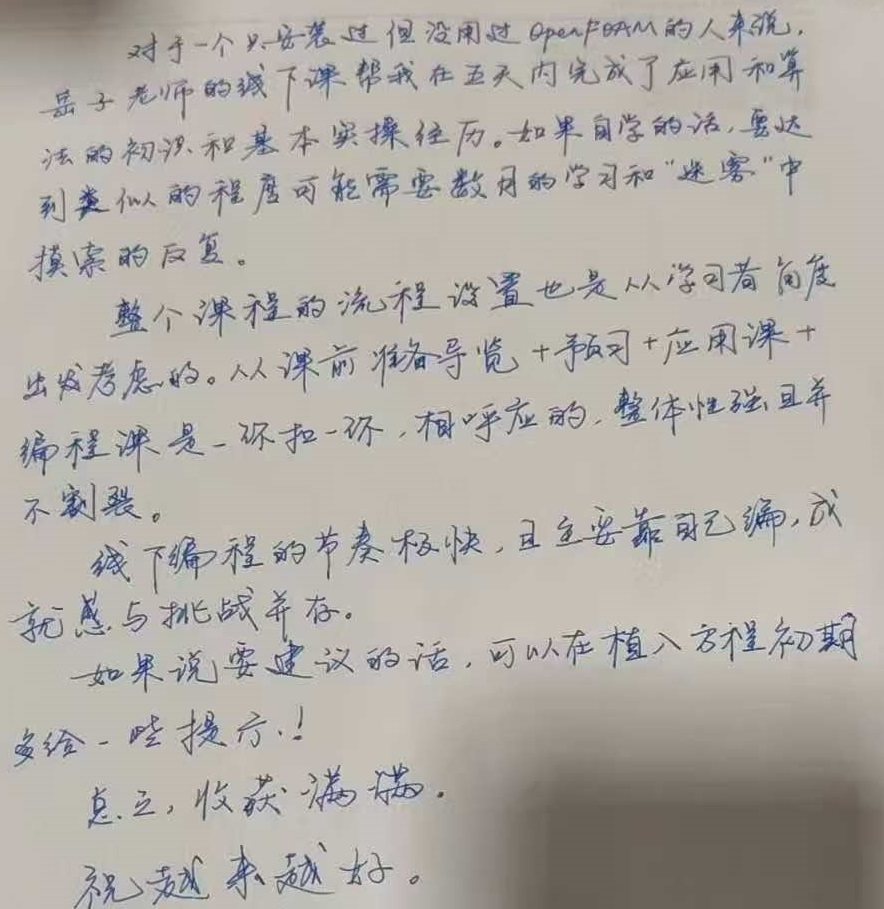 对于一个只安装过但没用过OpenFOAM的人来说，
岳子老师的线下课帮我在五天内完成了应用和算
法的初识和基本实操经历。如果自学的话，要达
到类似的程度可能需要数月的学习和“迷雾”中
摸索的反复。
整个课程的流程设置也是从学习者角度
出发考虑的。从课前准备导览+预习+应用课+
编程课是一环扣一环，相呼应的，整体性强且并
不割裂。
线下编程的节奏极快，且主要靠自己编，成
就感与挑战并存。
如果说要建议的话，可以在植入方程初期
多给一些提示！
总之，收获满满。
祝越来越好。